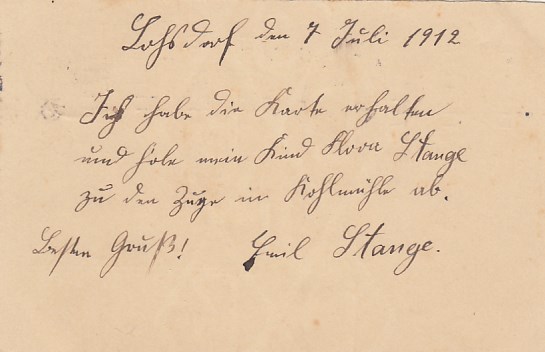 Lohsdorf den 7 Juli 1912
Ich habe die Karte erhalten
und hole mein Kind Flora Stange
zu den Zuge in Kohlmühle ab.
Besten Gruß! Emil Stange.